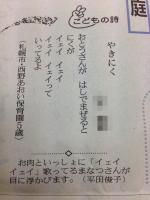 庭
こどもの詩
やきにく
おとうさんが はしでまぜると
にくが
イェイ イェイ
イェイ イェイって
いってるよ
（札幌市・西野あおい保育園5歳）
お肉といっしょに「イェイ
イェイ」歌ってるまなつさんが
目に浮かびます。（平田俊子）